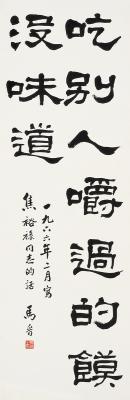 吃别人嚼過的饃
没味道
一九六六年二月寫
焦裕祿同志的話 馬晋